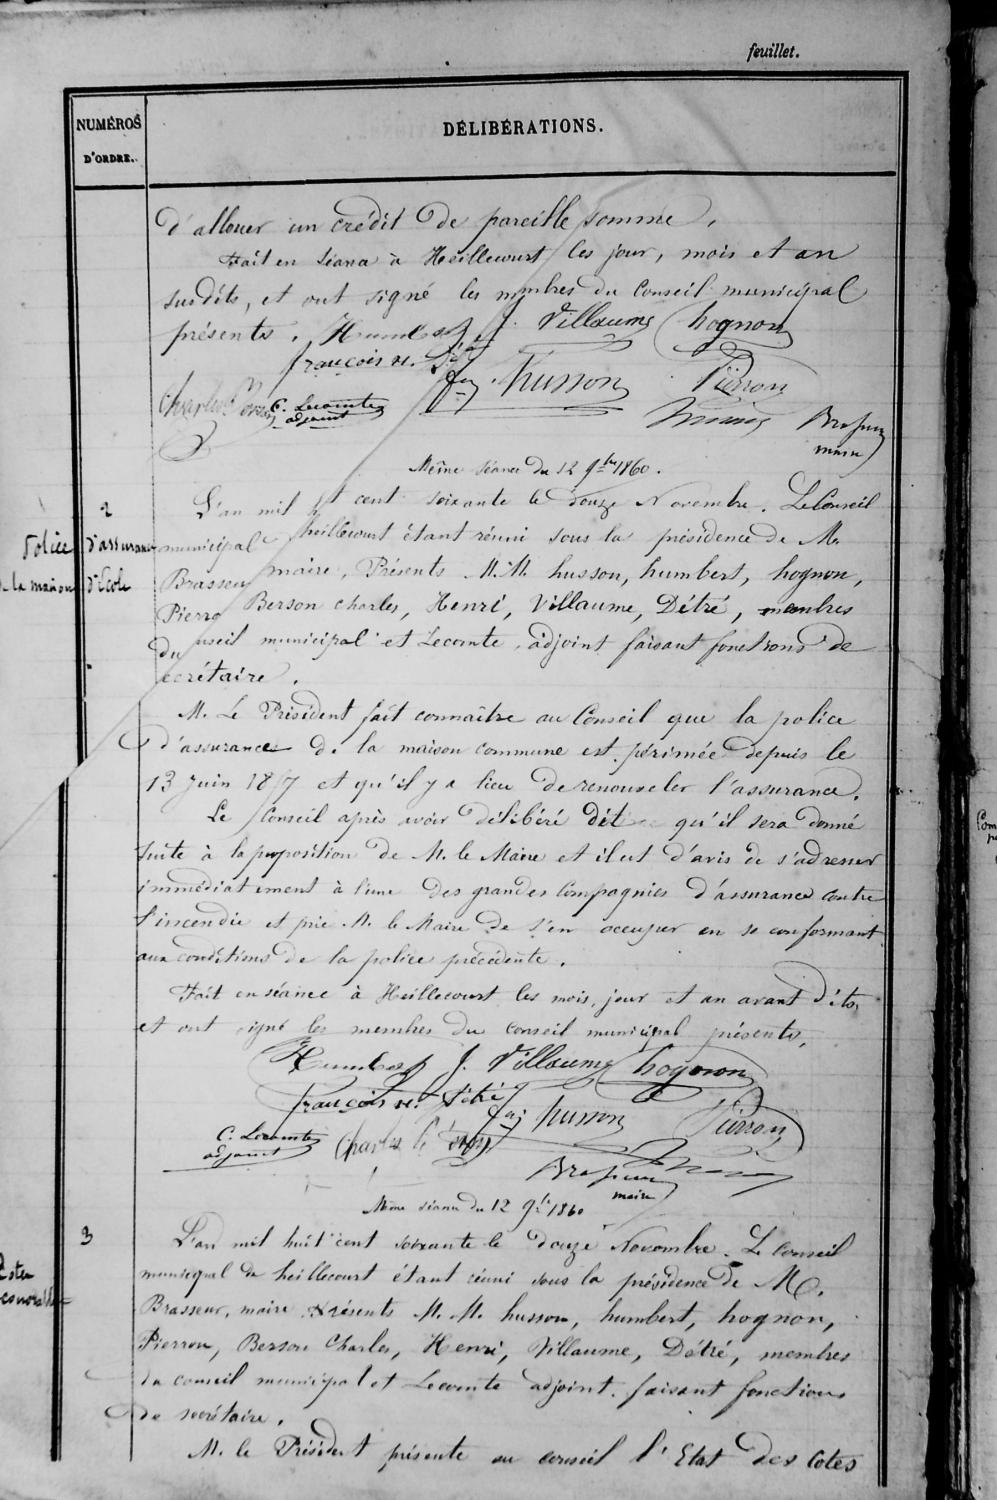 feuillet.
NUMÉROS
D'ORDRE.
DÉLIBÉRATIONS.
d'allouer un crédit de pareille somme.
Fait en séance à Heillecourt les jour, mois et an
susdits, et ont signé les membres du Conseil municipal
présents. Humbert J. Villaume hognon
françois h. Détré
fçs husson Pierron
Charles Berson C. Lecomte
adjoint
Brasseur
maire
Même séance du 12 9bre 1860.
2
Police d'assurance
de la maison d'Ecole
L'an mil cent soixante le douze Novembre. Le Conseil
municipal heillecourt étant réuni sous la présidence de M.
Brasseur maire, Présents M.M. husson, humbert, hognon,
Pierro Berson Charles, Henri, Villaume, Détré, membres
du nseil municipal et Lecomte, adjoint faisant fonctions de
ecrétaire.
M. Le Président fait connaître au Conseil que la police
d'assurances de la maison commune est périmée depuis le
13 Juin 18 7 et qu'il y a lieu de renouveler l'assurance.
Le Conseil après avoir délibéré dit qu'il sera donné
suite à la proposition de M. le Maire et il est d'avis de s'adresser
immédiatement à l'une des grandes Compagnies d'assurance contre
l'incendie et prie M. le Maire de s'en occuper en se conformant
aux conditions de la police précédente.
Fait en séance à Heillecourt les mois, jour et an avant dits,
et ont signé les membres du conseil municipal présents,
Humbert J. Villaume hognon
françois h. Détré
fçs husson Pierron
C. Lecomte
adjoint
Charles Berson
Brasseur
maire
Même séance du 12 9bre 1860
3
L'an mil huit cent soixante le douze Novembre. Le Conseil
municipal de heillecourt étant réuni sous la présidence de M.
Brasseur, maire Présents M. M. husson, humbert, hognon,
Pierron, Berson Charles, Henri, Villaume, Détré, membres
du conseil municipal et Lecomte adjoint. faisant fonctions
de secrétaire.
M. le Président présente au conseil l'Etat des Cotes